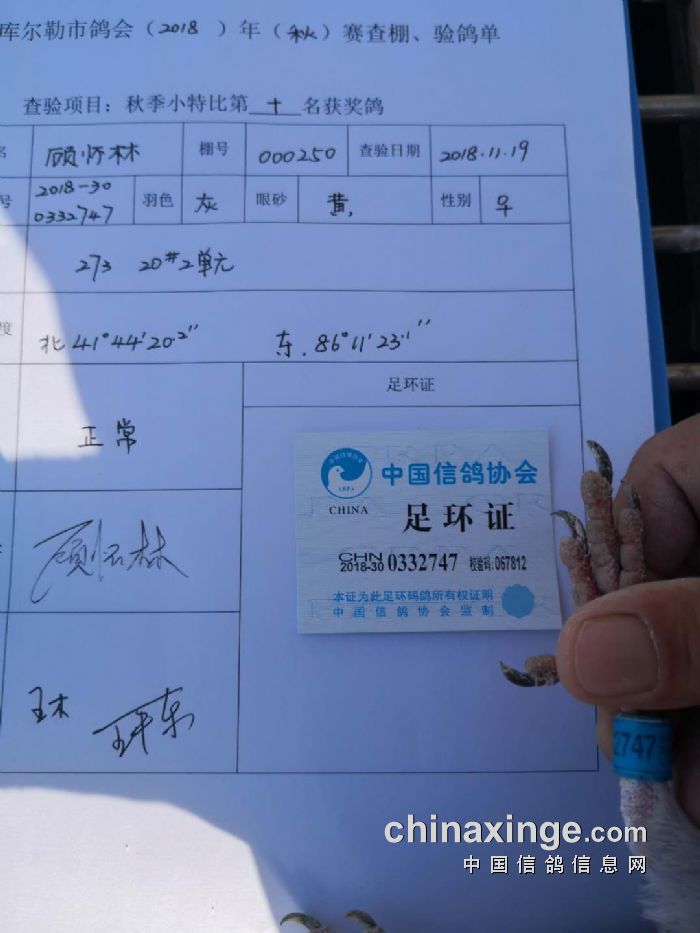 库尔勒市鸽会（2018）年（秋）赛查棚、验鸽单
查验项目：秋季小特比第十名获奖鸽
名 顾怀林 棚号 000250 查验日期 2018.11.19
号 2018-30 0332747 羽色 灰 眼砂 黄, 性别 早
273 20#2单元
度 北41°44'20.2" 东.86°11'23.1"
足环证
正常
顾怀林
中国信鸽协会
CHINA
足环证
CHN
2018-30 0332747 校验码:067812
本证为此足环码鸽所有权证明
中国信鸽协会监制
王木
2747
chinaxinge.com
中国信鸽信息网